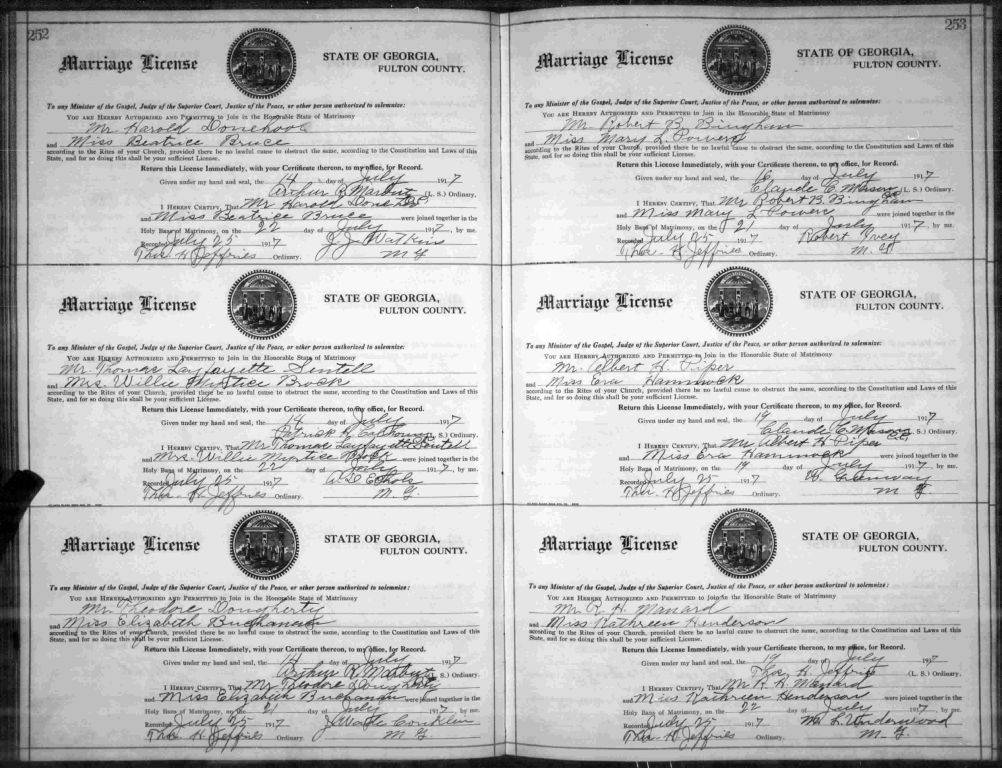 252
Marriage License
STATE OF GEORGIA,
FULTON COUNTY.
To any Minister of the Gospel, Judge of the Superior Court, Justice of the Peace, or other person authorized to solemnize:
YOU ARE HEREBY AUTHORIZED AND PERMITTED to Join in the Honorable State of Matrimony
Mr. Harold Donehoo
and Miss Beatrice Bruce
according to the Rites of your Church, provided there be no lawful cause to obstruct the same, according to the Constitution and Laws of this
State, and for so doing this shall be your sufficient License.
Return this License Immediately, with your Certificate thereon, to my office, for Record.
Given under my hand and seal, the 14 day of July 1917
Arthur R. Marbut (L. S.) Ordinary.
I HEREBY CERTIFY, That Mr Harold
and Miss Beatrice Bruce were joined together in the
Holy Bans of Matrimony, on the 22 day of July 1917, by me.
Recorded July 25 1917 J. J. Watkins
Thos. H. Jeffries Ordinary. M. G.
Marriage License
STATE OF GEORGIA,
FULTON COUNTY.
To any Minister of the Gospel, Judge of the Superior Court, Justice of the Peace, or other person authorized to solemnize:
YOU ARE HEREBY AUTHORIZED AND PERMITTED to Join in the Honorable State of Matrimony
Mr. Thomas Layfayette Sentell
and Mrs. Willie Myrtice Brock
according to the Rites of your Church, provided there be no lawful cause to obstruct the same, according to the Constitution and Laws of this
State, and for so doing this shall be your sufficient License.
Return this License Immediately, with your Certificate thereon, to my office, for Record.
Given under my hand and seal, the 14 day of July 1917
Patrick H. Calhoun (L. S.) Ordinary.
I HEREBY CERTIFY, That Mr Thomas Layfayette
and Mrs. Willie Myrtice Brock were joined together in the
Holy Bans of Matrimony, on the 22 day of July 1917, by me.
Recorded July 25 1917 Echols
Thos. H. Jeffries Ordinary. M. G.
Marriage License
STATE OF GEORGIA,
FULTON COUNTY.
To any Minister of the Gospel, Judge of the Superior Court, Justice of the Peace, or other person authorized to solemnize:
YOU ARE HEREBY AUTHORIZED AND PERMITTED to Join in the Honorable State of Matrimony
Mr. Theodore Dougherty
and Miss Elizabeth Buchanan
according to the Rites of your Church, provided there be no lawful cause to obstruct the same, according to the Constitution and Laws of this
State, and for so doing this shall be your sufficient License.
Return this License Immediately, with your Certificate thereon, to my office, for Record.
Given under my hand and seal, the 14 day of July 1917
Arthur R. Marbut (L. S.) Ordinary.
I HEREBY CERTIFY, That Mr Theodore
and Miss Elizabeth Buchanan were joined together in the
Holy Bans of Matrimony, on the 21 day of July 1917, by me.
Recorded July 25 1917 J. Wade Conklin
Thos. H. Jeffries Ordinary. M. G.
253
Marriage License
STATE OF GEORGIA,
FULTON COUNTY.
To any Minister of the Gospel, Judge of the Superior Court, Justice of the Peace, or other person authorized to solemnize:
YOU ARE HEREBY AUTHORIZED AND PERMITTED to Join in the Honorable State of Matrimony
Mr. Robert B. Bingham
and Miss Mary L. Powers
according to the Rites of your Church, provided there be no lawful cause to obstruct the same, according to the Constitution and Laws of this
State, and for so doing this shall be your sufficient License.
Return this License Immediately, with your Certificate thereon, to my office, for Record.
Given under my hand and seal, the 6 day of July 1917
Claude C. Mason (L. S.) Ordinary.
I HEREBY CERTIFY, That Mr Robert B. Bingham
and Miss Mary L Powers were joined together in the
Holy Bans of Matrimony, on the 21 day of July 1917, by me.
Recorded July 25 1917 Robert Ivey
Thos. H. Jeffries Ordinary. M. G.
Marriage License
STATE OF GEORGIA,
FULTON COUNTY.
To any Minister of the Gospel, Judge of the Superior Court, Justice of the Peace, or other person authorized to solemnize:
YOU ARE HEREBY AUTHORIZED AND PERMITTED to Join in the Honorable State of Matrimony
Mr. Albert H. Piper
and Miss Era Hammock
according to the Rites of your Church, provided there be no lawful cause to obstruct the same, according to the Constitution and Laws of this
State, and for so doing this shall be your sufficient License.
Return this License Immediately, with your Certificate thereon, to my office, for Record.
Given under my hand and seal, the 19 day of July 1917
Claude C. Mason (L. S.) Ordinary.
I HEREBY CERTIFY, That Mr Albert H Piper
and Miss Era Hammock were joined together in the
Holy Bans of Matrimony, on the 19 day of July 1917, by me.
Recorded July 25 1917 W.
Thos. H. Jeffries Ordinary. M. G.
Marriage License
STATE OF GEORGIA,
FULTON COUNTY.
To any Minister of the Gospel, Judge of the Superior Court, Justice of the Peace, or other person authorized to solemnize:
YOU ARE HEREBY AUTHORIZED AND PERMITTED to Join in the Honorable State of Matrimony
Mr. R. H. Manard
and Miss Kathreen Henderson
according to the Rites of your Church, provided there be no lawful cause to obstruct the same, according to the Constitution and Laws of this
State, and for so doing this shall be your sufficient License.
Return this License Immediately, with your Certificate thereon, to my office, for Record.
Given under my hand and seal, the 19 day of July 1917
Thos. H. Jeffries (L. S.) Ordinary.
I HEREBY CERTIFY, That Mr R. H. Manard
and Miss Kathreen Henderson were joined together in the
Holy Bans of Matrimony, on the 22 day of July 1917, by me.
Recorded July 25 1917 L. Underwood
Thos. H. Jeffries Ordinary. M. G.